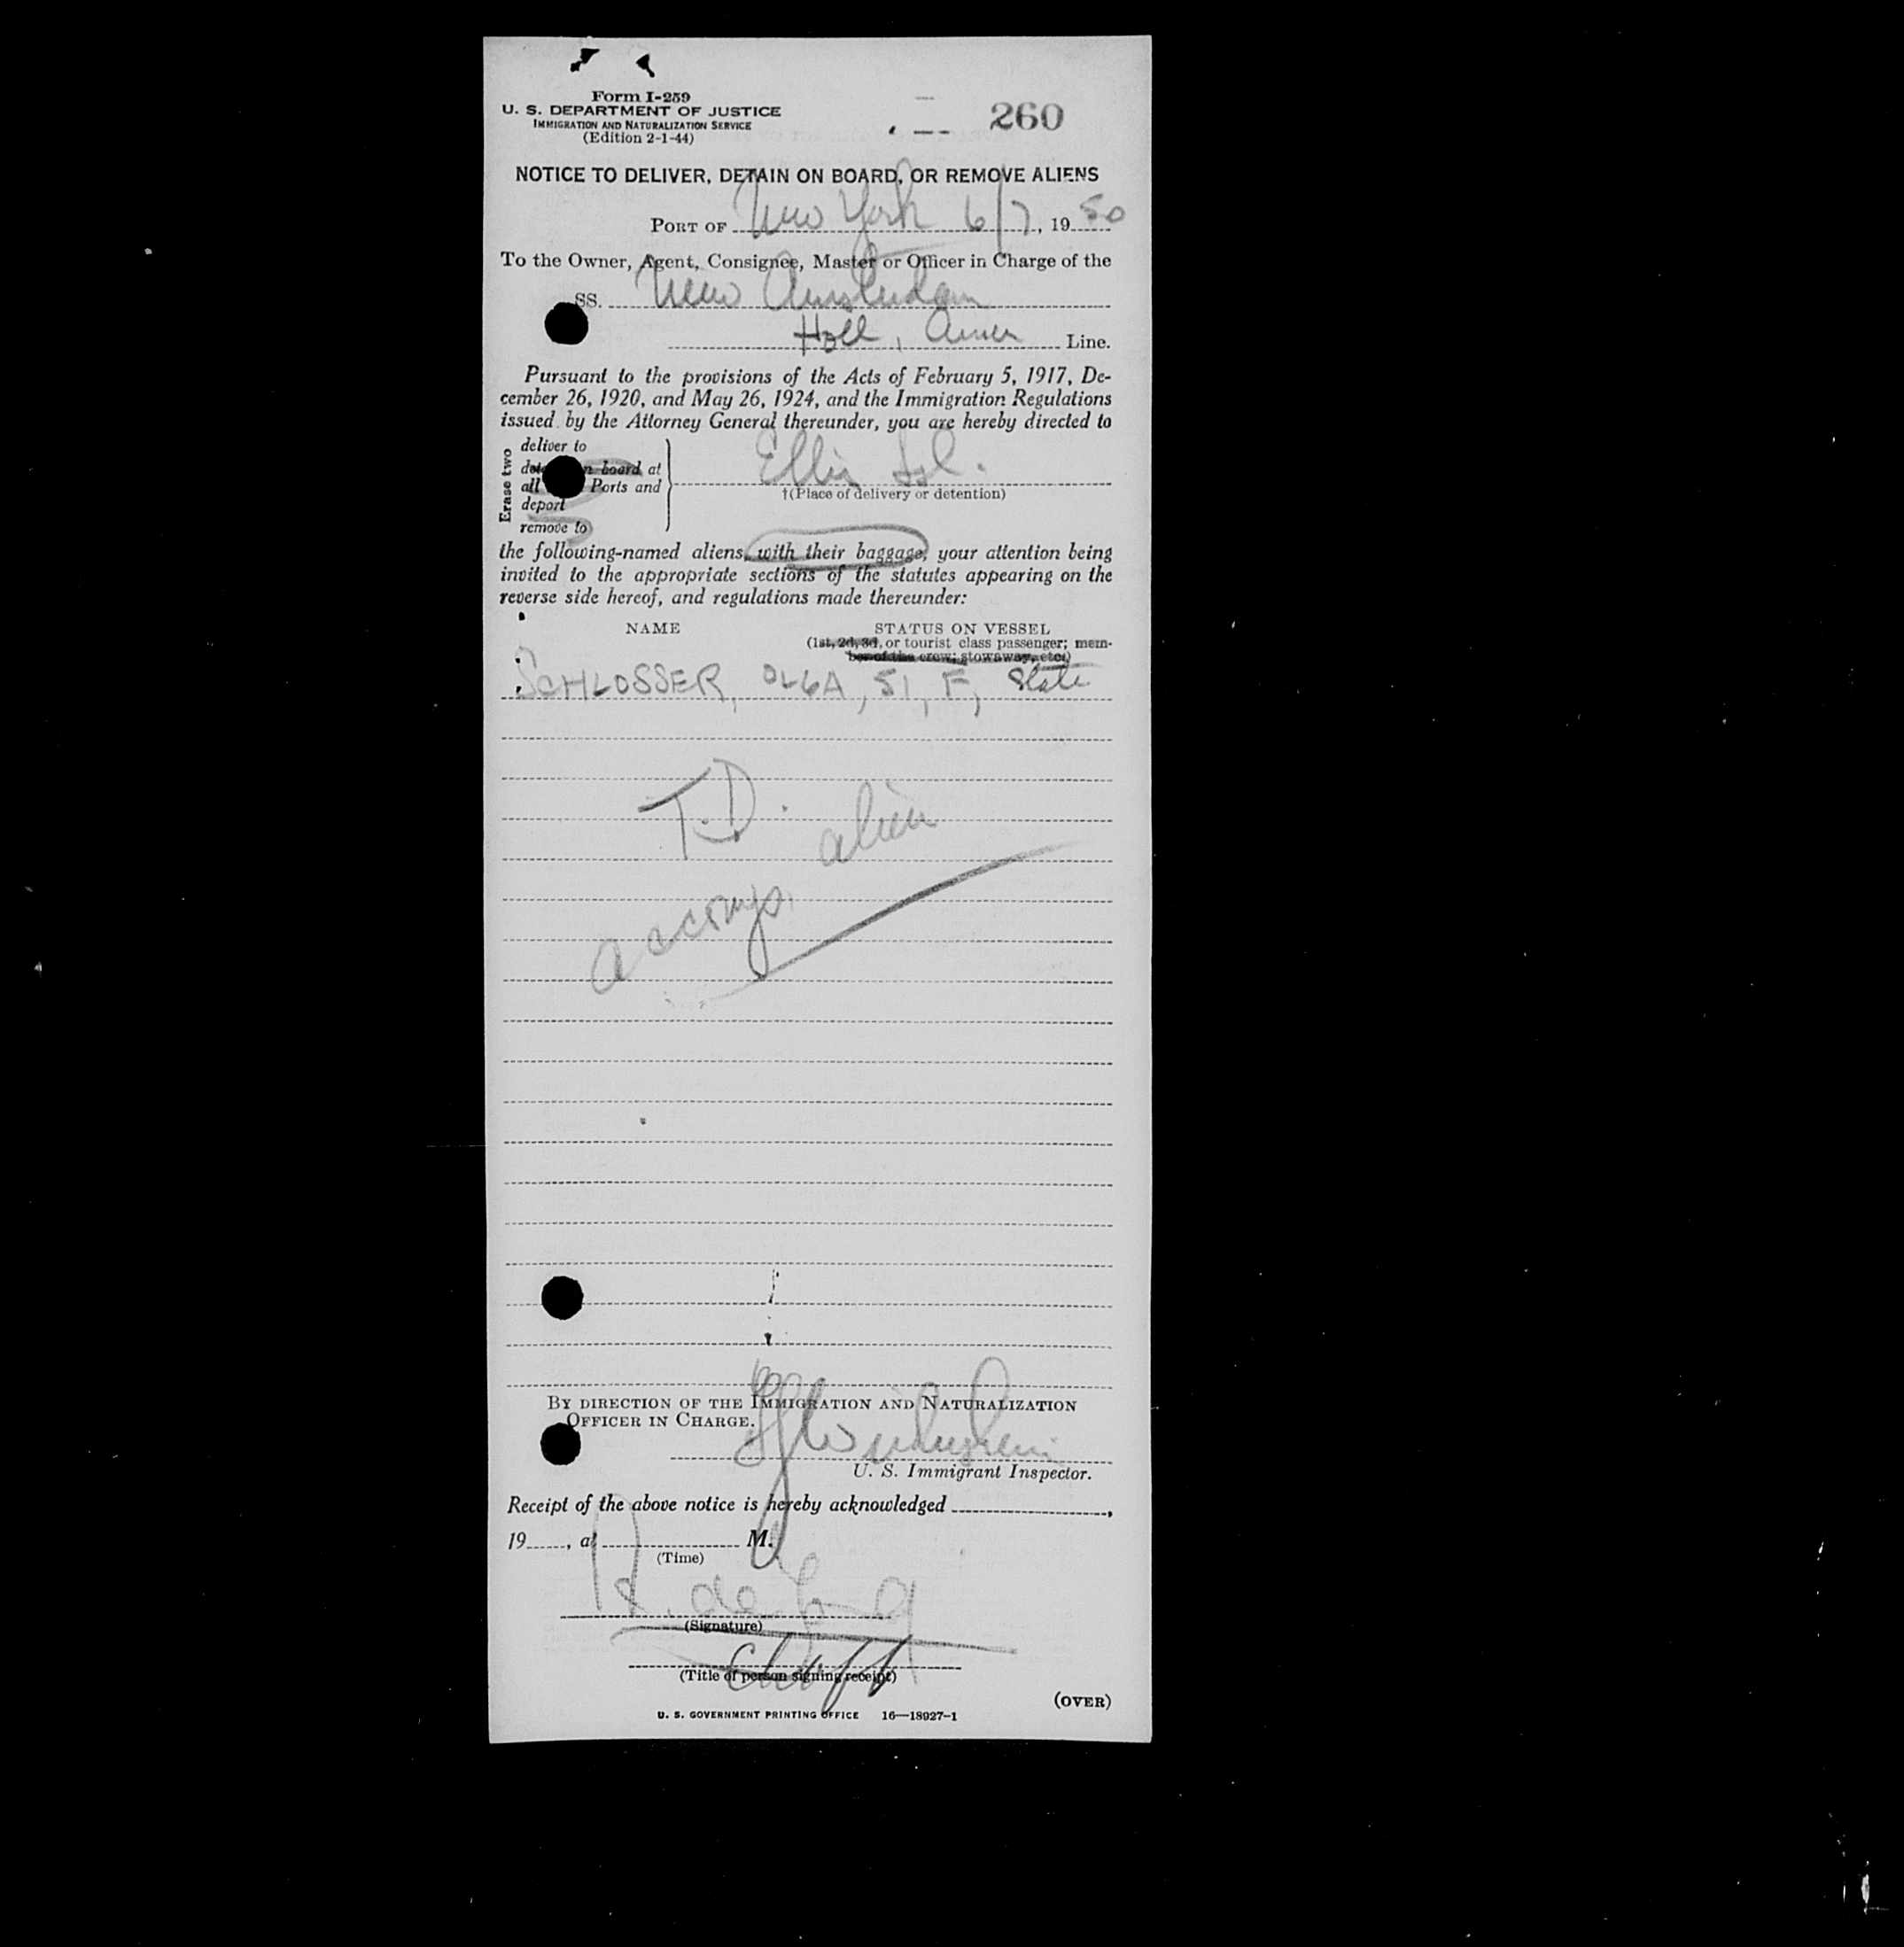 Form I-259
U. S. DEPARTMENT OF JUSTICE
IMMIGRATION AND NATURALIZATION SERVICE
(Edition 2-1-44)
260
NOTICE TO DELIVER, DETAIN ON BOARD, OR REMOVE ALIENS
PORT OF New York 6/7, 1950
To the Owner, Agent, Consignee, Master or Officer in Charge of the
SS. New Amsterdam
Holl, Amer Line.
Pursuant to the provisions of the Acts of February 5, 1917, De-
cember 26, 1920, and May 26, 1924, and the Immigration Regulations
issued by the Attorney General thereunder, you are hereby directed to
Erase two
deliver to
board at
all Ports and
deport
remove to
Ellis Isl.
†(Place of delivery or detention)
the following-named aliens, with their baggage, your attention being
invited to the appropriate sections of the statutes appearing on the
reverse side hereof, and regulations made thereunder:
NAME STATUS ON VESSEL
(1st, 2d, 3d, or tourist class passenger; mem-
ber of the crew; stowaway, etc.)
SCHLOSSER, OLGA, 51, F, State
T.D. alien
accomp.
BY DIRECTION OF THE IMMIGRATION AND NATURALIZATION
OFFICER IN CHARGE.
U. S. Immigrant Inspector.
Receipt of the above notice is hereby acknowledged ,
19 , at M.
(Time)
(Signature)
(Title of person signing receipt)
(OVER)
U. S. GOVERNMENT PRINTING OFFICE 16—18927-1